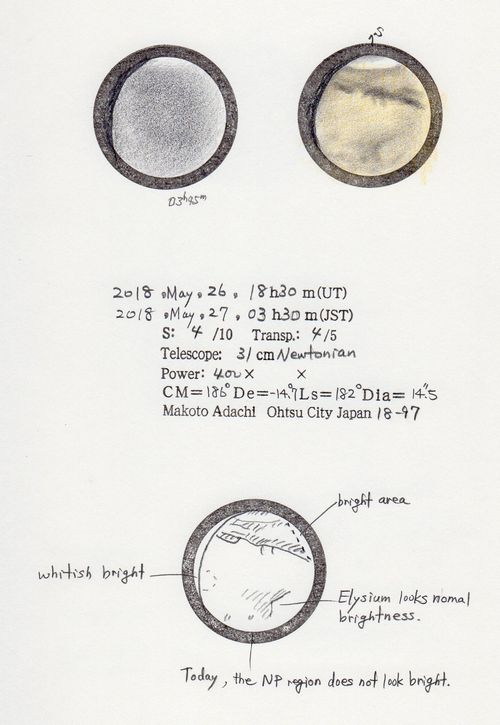 S
03h45m
2018, May, 26, 18h30m(UT)
2018, May, 27, 03h30m(JST)
S: 4 /10 Transp.: 4/5
Telescope: 31cm Newtonian
Power: 400× ×
CM=186° De=-14.°9 Ls=182° Dia=14."5
Makoto Adachi Ohtsu City Japan 18-97
bright area
whitish bright
Elysium looks nomal
brightness.
Today, the NP region does not look bright.